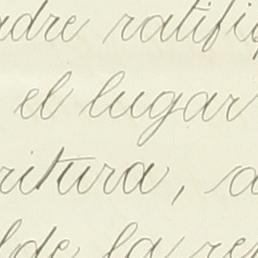 adre ratifiq
el lugar
ritura, a
lde la re